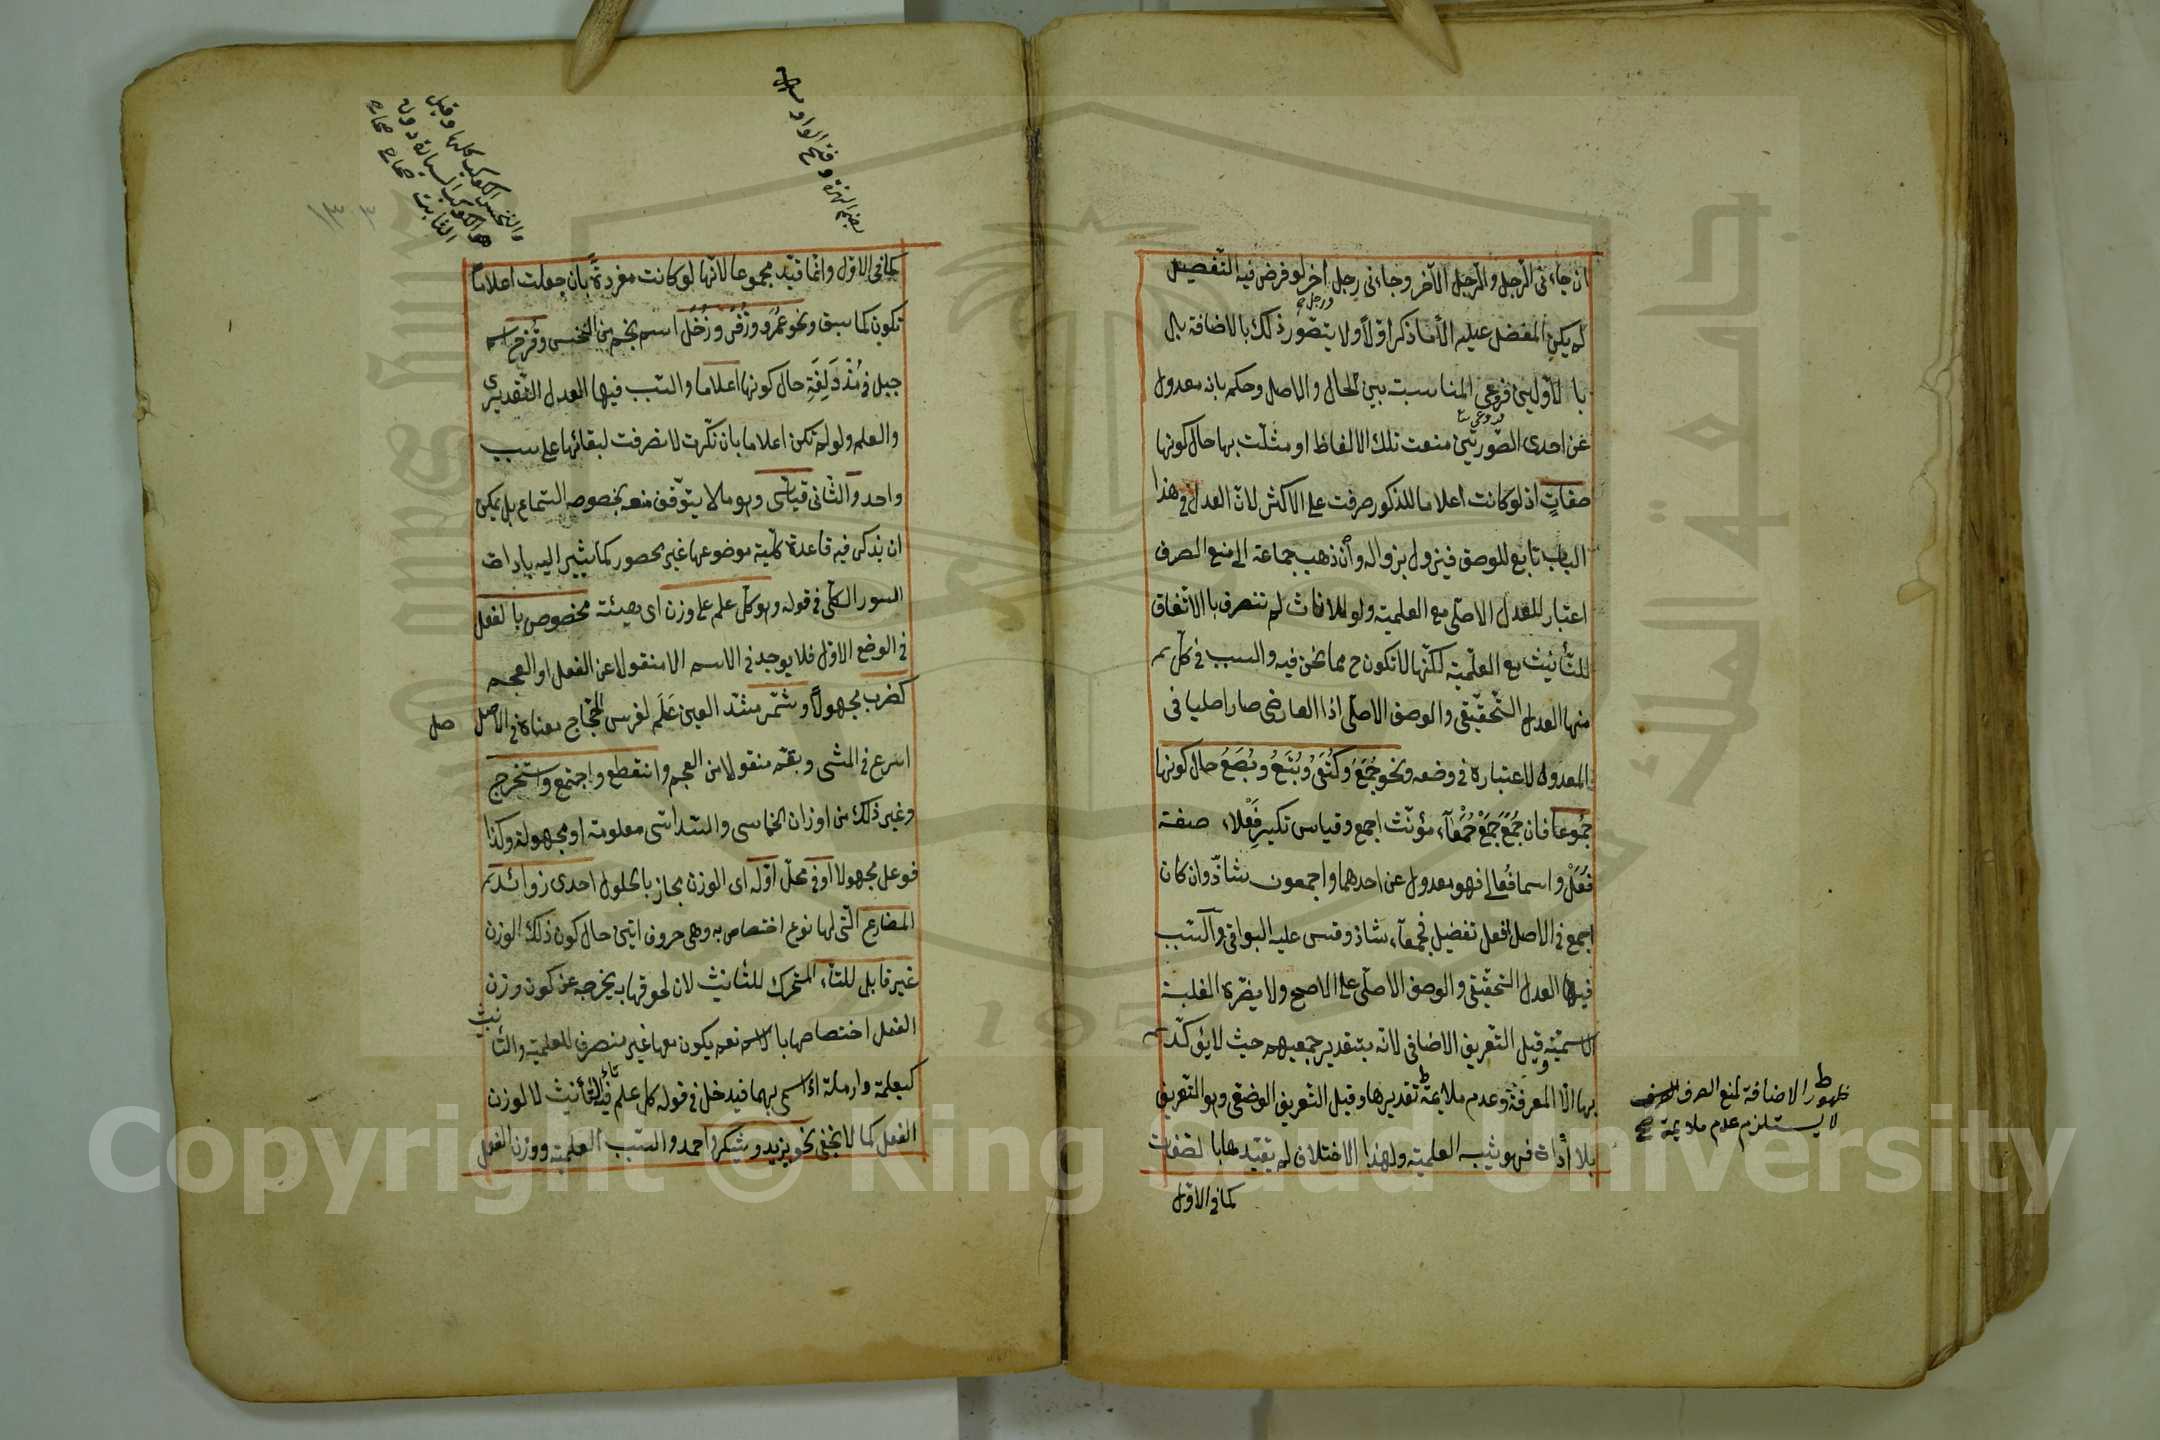 ان جاءنى الرّجل والرّجل الآخر وجاءنى رجل آخر لو فرض فيه التفضيل
لم يكن المفضل عليه الّا ما ذكر اوّلا ولا يتصوّر ذلك بالاضافة بل
ورجل صح
با لاوليين فروعى المناسبت بين الحال والاصل وحكم بانه معدول
عن احدى الصّورتين منعت تلك الالفاظ او مثلت بها حال كونها
صفاتٍ اذ لو كانت اعلاما للذكور صرفت على الاكثر لانّ العدل فى هذا
الباب تابع للوصف فيزول بزواله وأن ذهب جماعة الى منع الصرف
اعتبار للعدل الاصلى مع العلمية ولو للاناث لم تنصرف با الاتفاق
للتأنيث مع العلمية لكنّها لا تكون ح مما نحن فيه والسبب فى كل
منها العدل التّحقيقى والوصف الاصلّى اذا العارضى صار اصليا فى
المعدول لاعتباره فى وضعه ونحو جُمَعَ وكُتَعَ وبُتَعَ وبُصَعَ حال كونها
جموعا فان جُمَعَ جَمْعُ جَمْعَآء مؤنّث اجمع وقياس تكسير فَعْلاء صفة
فُعْلٌ واسما فعالى فهو معدول عن احدهما واجمعون شاذّ وان كان
اجمع فى الاصل افعل تفضيل فجمعآء شاذ وقس عليه البواقى والسّبب
فيها العدل التّحقيقى والوصف الاصلّى على الاصح ولا يضرّه الغلبة
الاسميّة وقيل التّعريف الاضافى لانّه بتقدير جمعهم حيث لا يؤكّد
بها الّا المعرفة وعدم ملايمة تقديرها وقيل التّعريف الوضعى وهو التّعريف
بلا أداة فهو شبه العلمية ولهذا الاختلاف لم يقيّدها با لصّفات
كما فى الاوّل
ظهور الاضافة لمنع الصرف
لا يستلزم عدم ملايمة صح
بضم الهمزة وفتح الواو
والخنس الكواكب كلها وقيل
هو الكواكب السيارة دون
الثابت صحاح
كما فى الاوّل وانّما قيّد مجموعا لانّها لو كانت مفردةً بأن جعلت اعلاماً
تكون كما سبق ونحو عُمَرَ وزُفَرَ وزُحَل اسم نجم من الخنس وقُزَح اسم
جبل فى مُزْدَلِفَةِ حال كونها اعلاما والسّبب فيها العدل التّقديرى
والعلم ولو لم تكن اعلاما بان نكّرت لانصرفت لبقائها على سبب
واحد والثّانى قياسّى وهو ما لا يتوّقف منعه بخصوصه السّماع بل يمكن
ان يذكر فيه قاعدة كلّية موضوعها غير محصور كما يشير اليه بادات
السور الكلّى فى قوله وهو كلّ علم على وزن اى هيئة مخصوص بالفعل
فى الوضع الاوّل فلا يوجد فى الاسم الا منقولا عن الفعل او العجم
كضرب مجهولاً وشمّر مشدّد العين عَلَم لفرس الحجّاج معناه فى الاصل
اسرع فى المشى وبقّم منقولا من العجم وانقطع واجتمع واستخرج
وغير ذلك من اوزان الخماسى والسّداسّى معلومة او مجهولة وكذا
فوعل مجهولا او فى محلّ اوّله اى الوزن مجاز باطلول احدى زوائد
المضارع الّتى لها نوع اختصاص به وهى حروف اتين حال كون ذلك الوزن
غير قابل للتّاء المتحرك للتّأنيث لان لحوقها به يخرجه عن كون وزن
الفعل اختصاصها بالاسم نعم يكون معها غير منصرف للعلمية والتّأنيث
كيعلمة وارملة اذا سمى بهما فيدخل فى قوله كل علم فيه تاء التّأنيث لا لوزن
الفعل كما لا يخفى نحو يزيد ويشكر واحمد والسّبب العلمية ووزن الفعل